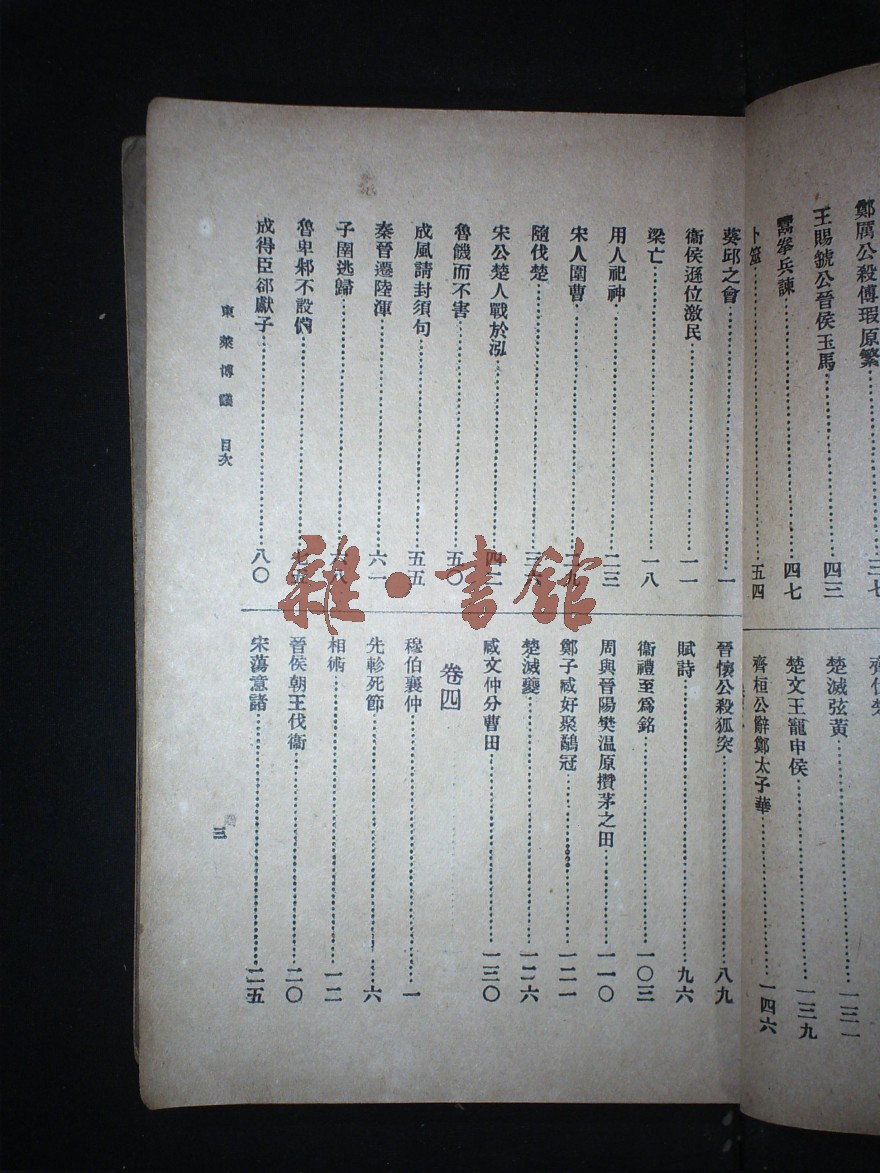 鄭厲公殺傅瑕原繁……三七
王賜虢公晉侯玉馬……四三
鬻拳兵諫……四七
卜筮……五四
楚滅弦黃……一三一
楚文王寵申侯……一三九
齊桓公辭鄭太子華……一四六
葵邱之會……一
衞侯遜位激民……一一
梁亡……一八
用人祀神……二三
宋人圍曹……二九
隨伐楚……三六
宋公楚人戰於泓……四二
魯饑而不害……五〇
成風請封須句……五五
秦晉遷陸渾……六一
子圉逃歸……六八
魯卑邾不設備
成得臣郤獻子……八〇
晉懷公殺狐突……八九
賦詩……九六
衞禮至爲銘……一〇三
周與晉陽樊溫原攢茅之田……一一〇
鄭子臧好聚鷸冠……一二一
楚滅夔……一二六
臧文仲分曹田……一三〇
卷四
穆伯襄仲……一
先軫死節……六
相術……一二
晉侯朝王伐衞……二〇
宋蕩意諸……二五
東萊博議 目次
三
雜·書館